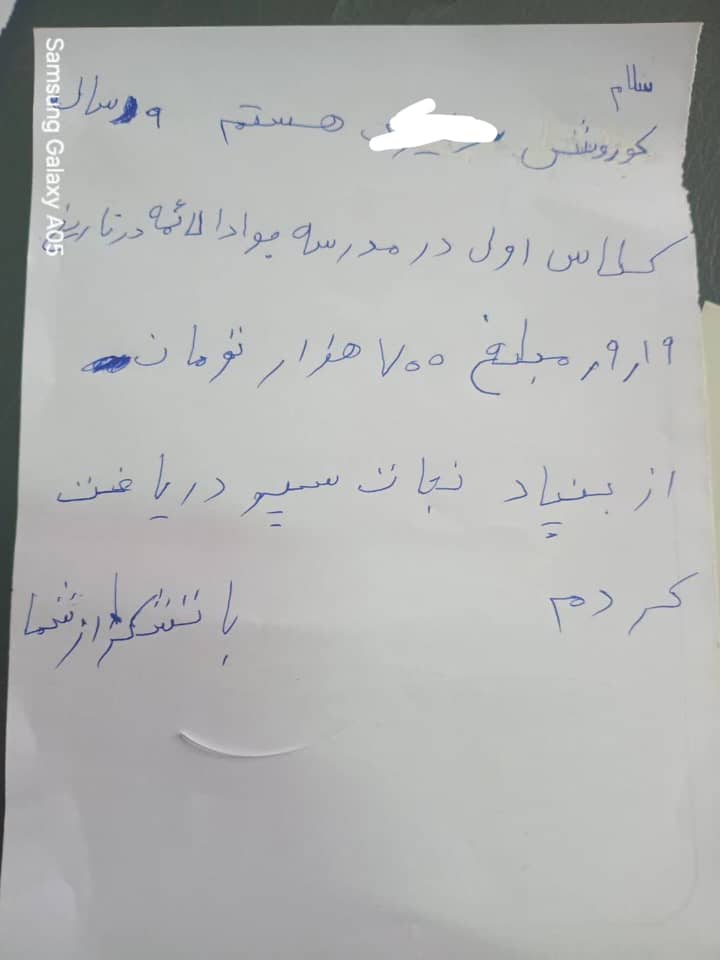 سلام
کوروش هستم ۹ سال
کلاس اول در مدرسه جوادالائمه در تاریخ
۹٫۱۹٫ مبلغ ۷۰۰ هزار تومان
از بنیاد نجات سپو دریافت
کردم با تشکر از شما
Samsung Galaxy A05